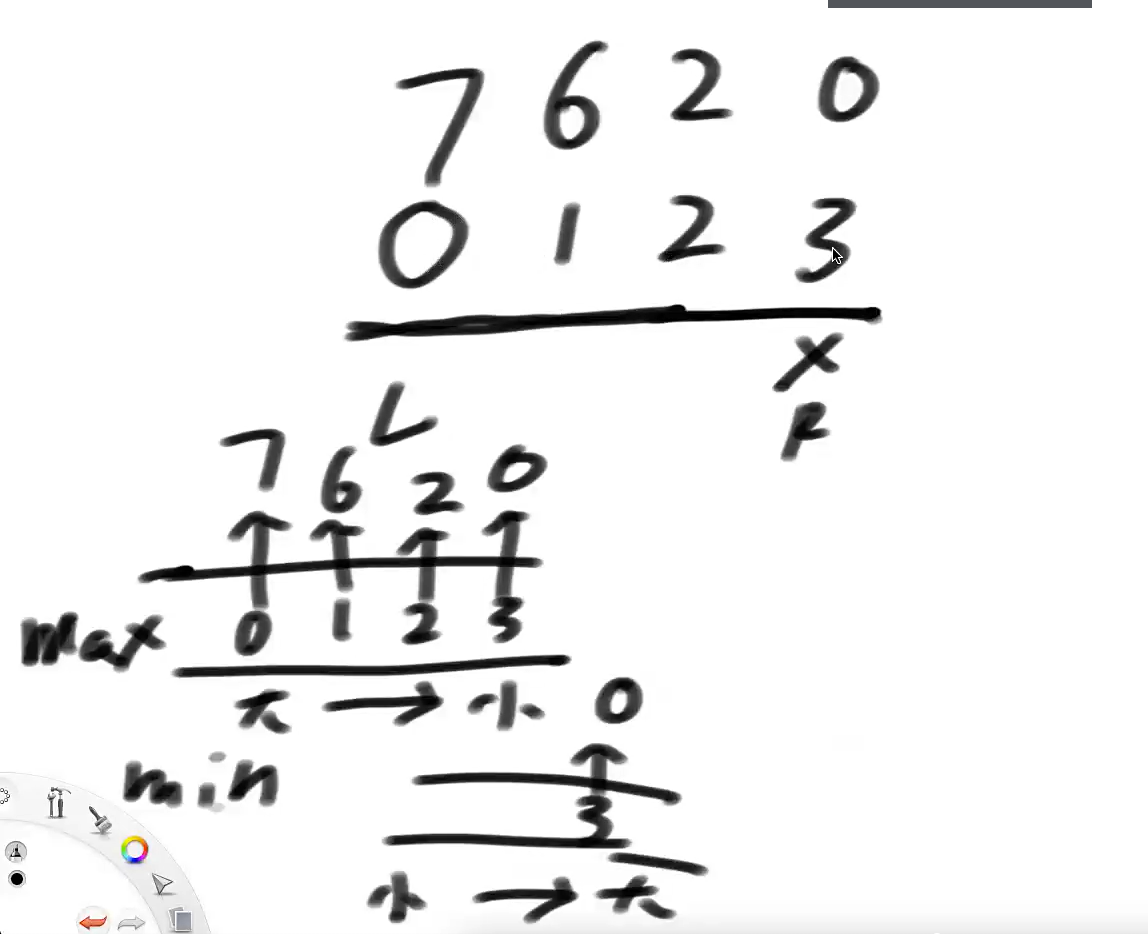 7 6 2 0
0 1 2 3
X
L R
7 6 2 0
max 0 1 2 3
大 → 小
min 0
3
小 → 大